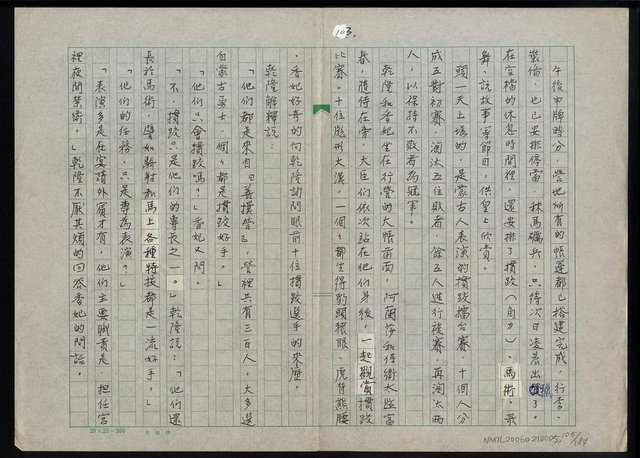 103.
午後申牌時分,營地所有的帳蓬都已搭建完成,行李、
裝備,也已安排停當,秣馬礪兵,只待次日凌晨出獵了。
在空檔的休息時間裡,還安排了摜跤(角力)、馬術、歌
舞、說故事等節目,供皇上欣賞。
頭一天上場的,是蒙古人表演的摜跤擂台賽,十個人分
成五對初賽,淘汰五位敗者,餘五人進行複賽,再淘汰兩
人,以保持不敗者為冠軍。
乾隆和香妃坐在行營的大帳前面,阿蘭
春,隨侍在旁,大臣們依次站在他們身後,一起觀賞摜跤
比賽。十位彪形大漢,一個個都生得豹頭猿眼、虎背熊腰
,香妃好奇的向乾隆詢問眼前十位摜跤選手的來歷,
乾隆解釋說:
「他們都是來自『善撲營』,營裡共有三百人,大多選
自蒙古勇士,個個都是摜跤好手。」
「他們只會摜跤嗎?」香妃又問。
「不,摜跤只是他們的專長之一。」乾隆說:「他們還
長於馬術,譬如騎射和馬上各種特技都是一流好手。」
「他們的任務,只是專為表演?」
「表演多是在宴請外賓才有,他們主要職責是,擔任宮
裡夜間禁衛。」乾隆不厭其煩的回答香妃的問話。
20×25=500
NMTL20060210005,105/184